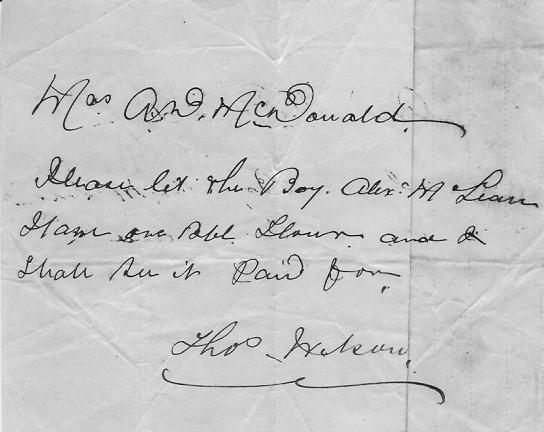 Mrs A. D. McDonald.
Please let the Boy. Alexr McLean
Have one Bbl Flour and I
Shall See it Paid for
Thos